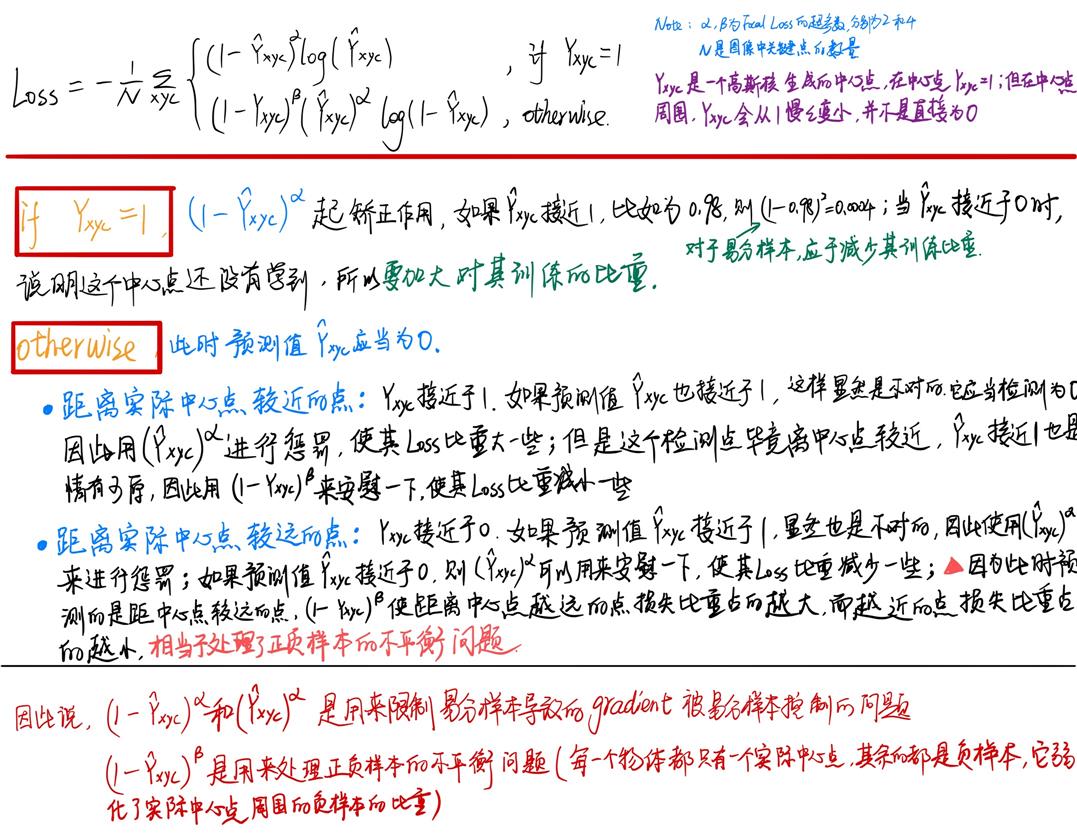 Loss = -\frac{1}{N} \sum_{xyc} \begin{cases} (1-\hat{Y}_{xyc})^{\alpha} log(\hat{Y}_{xyc}) & , if Y_{xyc}=1 \\ (1-Y_{xyc})^{\beta} (\hat{Y}_{xyc})^{\alpha} log(1-\hat{Y}_{xyc}) & , otherwise. \end{cases}
Note: α, β为Focal Loss的超参数, 分别为2和4
N是图像中关键点的数量
Yxyc是一个高斯核生成的中心点, 在中心点Yxyc=1; 但在中心点
周围, Yxyc会从1慢慢变小, 并不是直接为0
if Yxyc=1, (1-Ŷxyc)^α 起矫正作用, 如果Ŷxyc接近1, 比如为0.98, 则(1-0.98)²=0.0004; 当Ŷxyc接近于0时,
对于易分样本, 应于减少其训练比重.
说明这个中心点还没有学到, 所以要加大对其训练的比重.
otherwise, 此时预测值Ŷxyc应当为0.
• 距离实际中心点较近的点: Yxyc接近于1. 如果预测值Ŷxyc也接近于1, 这样显然是不对的. 它应当检测为0
因此用(Ŷxyc)^α进行惩罚, 使其Loss比重大一些; 但是这个检测点毕竟离中心点较近, Ŷxyc接近1也是
情有可原, 因此用(1-Yxyc)^β来安慰一下, 使其Loss比重减小一些
• 距离实际中心点较远的点: Yxyc接近于0. 如果预测值Ŷxyc接近于1, 显然也是不对的, 因此使用(Ŷxyc)^α
来进行惩罚; 如果预测值Ŷxyc接近于0, 则(Ŷxyc)^α可以用来安慰一下, 使其Loss比重减少一些; ▲因为此时预
测的是距中心点较远的点, (1-Yxyc)^β使距离中心点越远的点损失比重占的越大, 而越近的点损失比重占
的越小, 相当于处理了正负样本的不平衡问题.
因此说, (1-Ŷxyc)^α和(Ŷxyc)^α是用来限制易分样本导致的gradient被易分样本控制的问题
(1-Ŷxyc)^β是用来处理正负样本的不平衡问题(每一个物体都只有一个实际中心点, 其余的都是负样本, 它弱
化了实际中心点周围的负样本的比重)